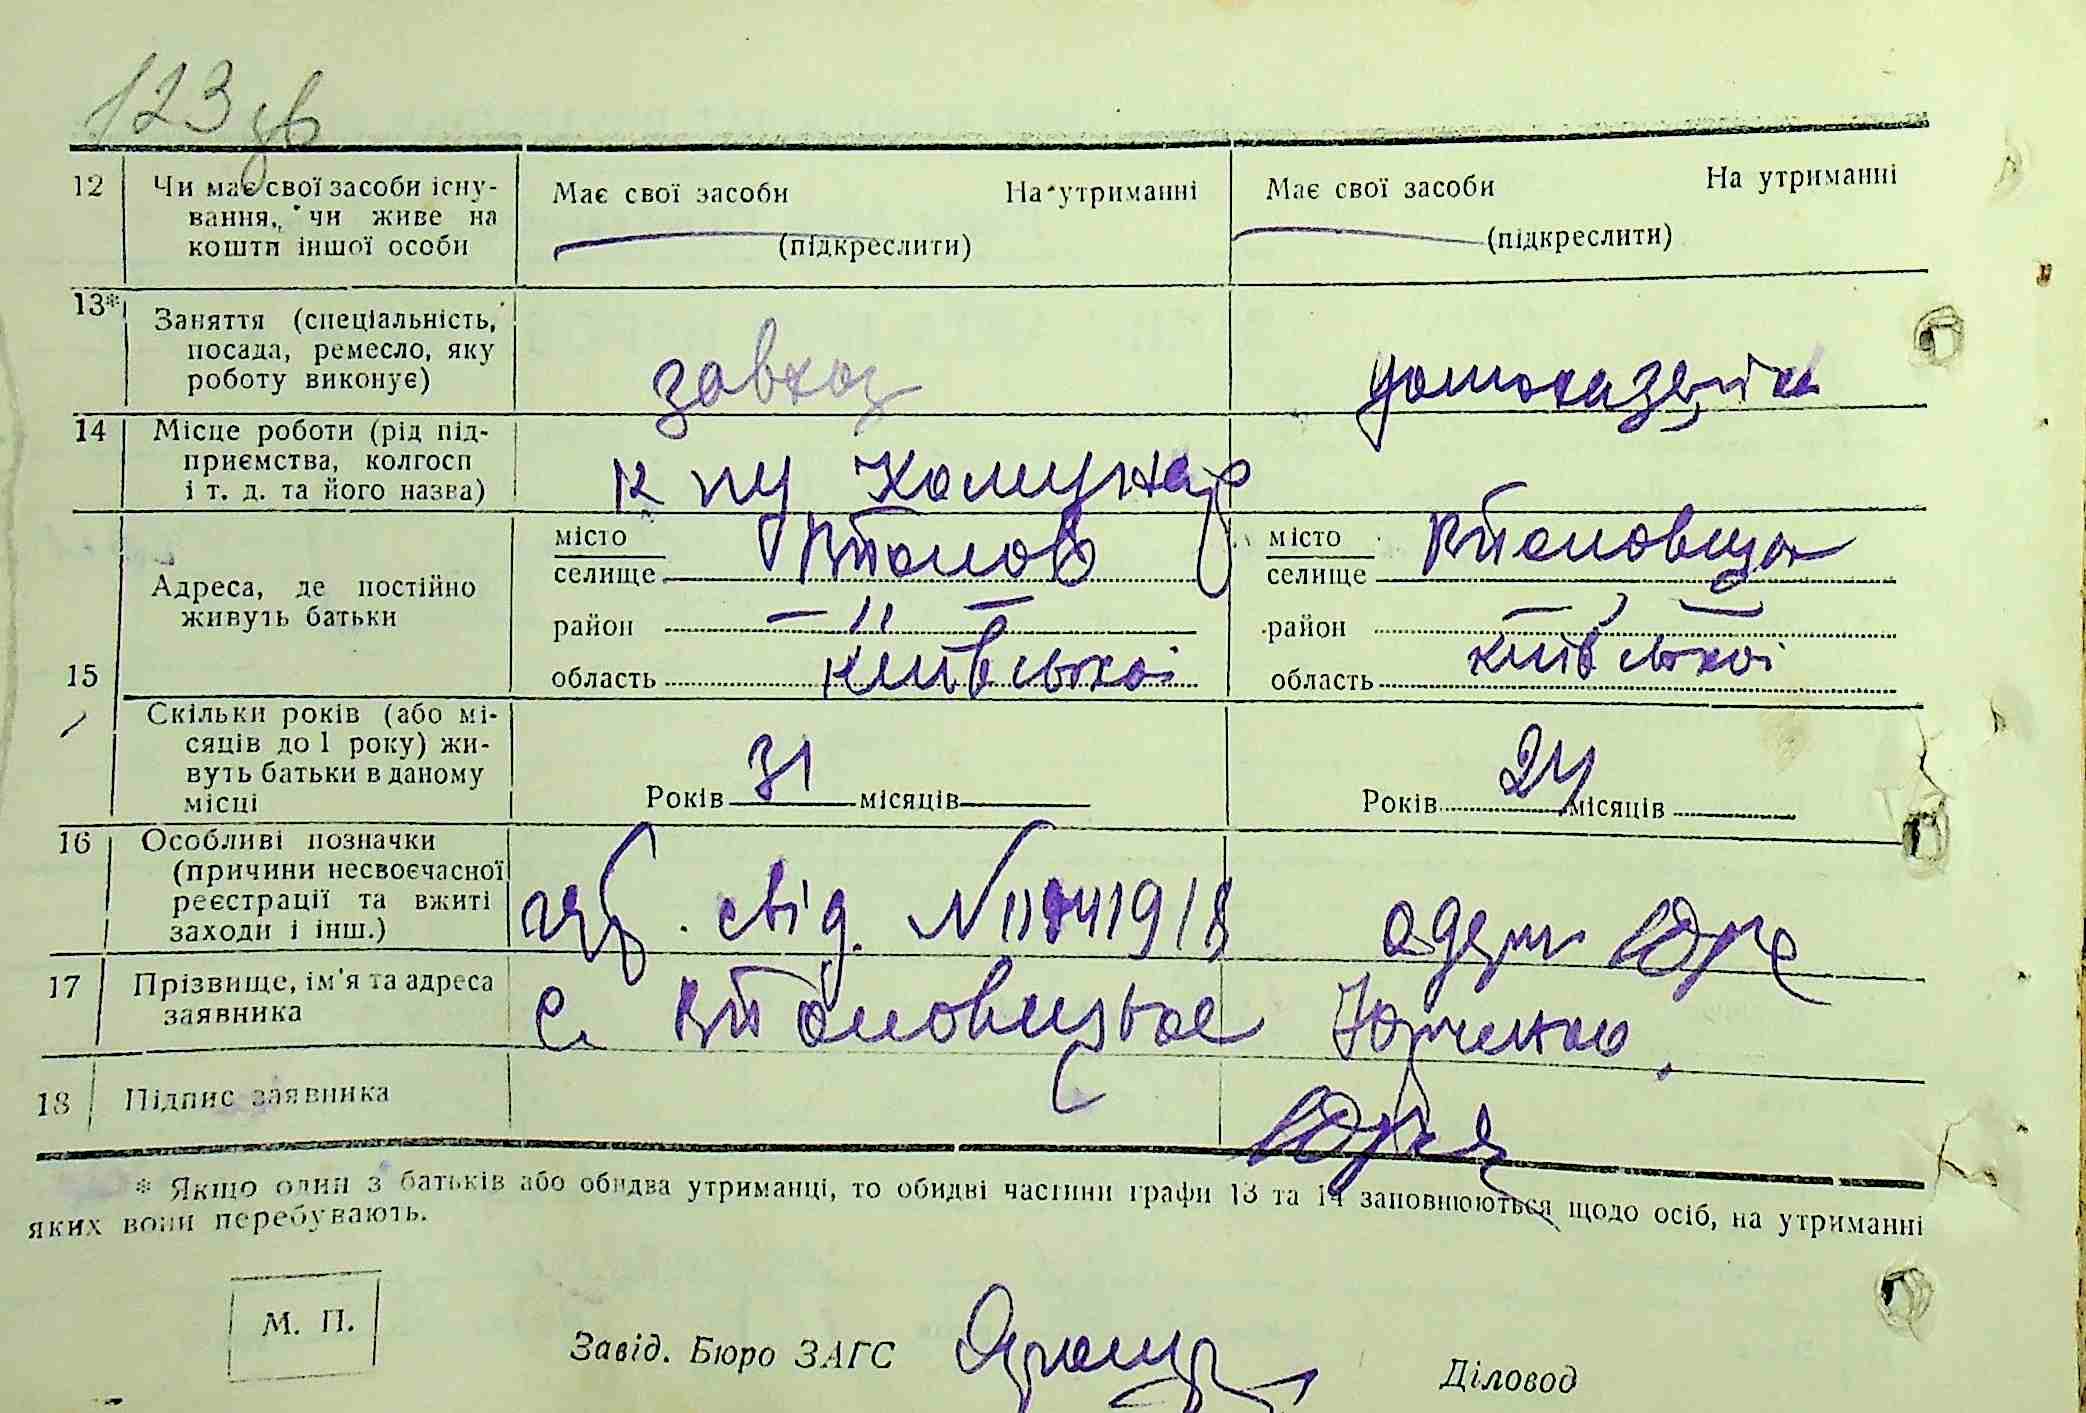 123 зв
12 Чи має свої засоби існу- Має свої засоби На утриманні Має свої засоби На утриманні
вання, чи живе на (підкреслити) (підкреслити)
кошти іншої особи
13* Заняття (спеціальність,
посада, ремесло, яку завхоз домохазяйка
роботу виконує)
14 Місце роботи (рід під-
приємства, колгосп Комунар
і т. д. та його назва)
місто місто
селище селище
Адреса, де постійно
живуть батьки
район — „ — район — „ —
15 область Київської область Київської
Скільки років (або мі-
сяців до 1 року) жи-
вуть батьки в даному Років 31 місяців Років 24 місяців
місці
16 Особливі позначки
(причини несвоєчасної
реєстрації та вжиті свід. №
заходи і інш.)
17 Прізвище, ім'я та адреса с.
заявника
18 Підпис заявника
* Якщо один з батьків або обидва утриманці, то обидві частини графи 13 та 14 заповнюються щодо осіб, на утриманні
яких вони перебувають.
М. П.
Завід. Бюро ЗАГС Діловод